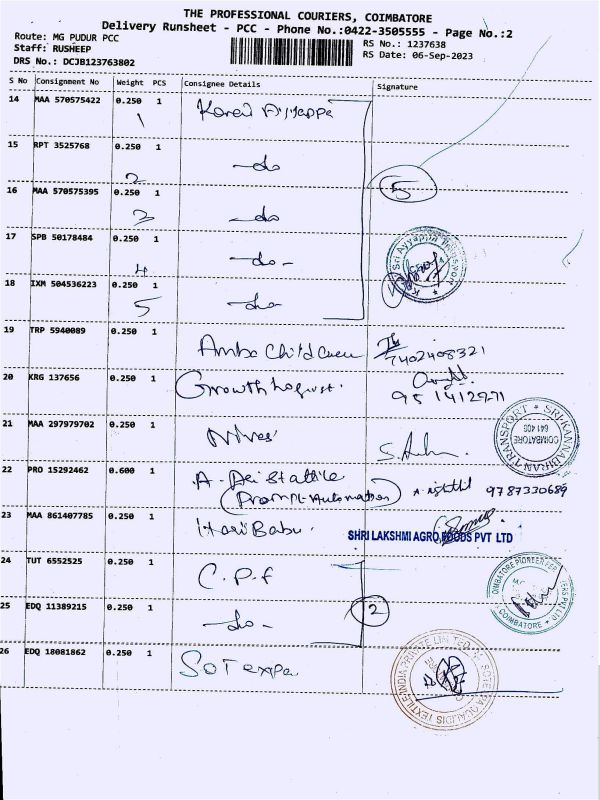 THE PROFESSIONAL COURIERS, COIMBATORE
Delivery Runsheet - PCC - Phone No.:0422-3505555 - Page No.:2
Route: MG PUDUR PCC
RS No.: 1237638
Staff: RUSHEEP
RS Date: 06-Sep-2023
DRS No.: DCJB123763802
S No Consignment No Weight PCS Consignee Details Signature
14 MAA 570575422 0.250 1
1
15 RPT 3525768 0.250 1
2 -do
5
16 MAA 570575395 0.250 1
3 -do
17 SPB 50178484 0.250 1
4 -do-
Sri Ayyappa Transport
18 IXM 504536223 0.250 1
5 -do
19 TRP 5940089 0.250 1
7402408321
20 KRG 137656 0.250 1
Growth
21 MAA 297979702 0.250 1
SRI KANNABIRAN TRANSPORT
COIMBATORE
641 406
22 PRO 15292462 0.600 1
(Prompt Automation) 9787330689
23 MAA 861407785 0.250 1
Hari Babu.
SHRI LAKSHMI AGRO FOODS PVT LTD
24 TUT 6552525 0.250 1
C.P.F
COIMBATORE PIONEER FERTILIZERS PVT LTD
COIMBATORE
25 EDQ 11389215 0.250 1
-do- 2
26 EDQ 18081862 0.250 1
SOT expa